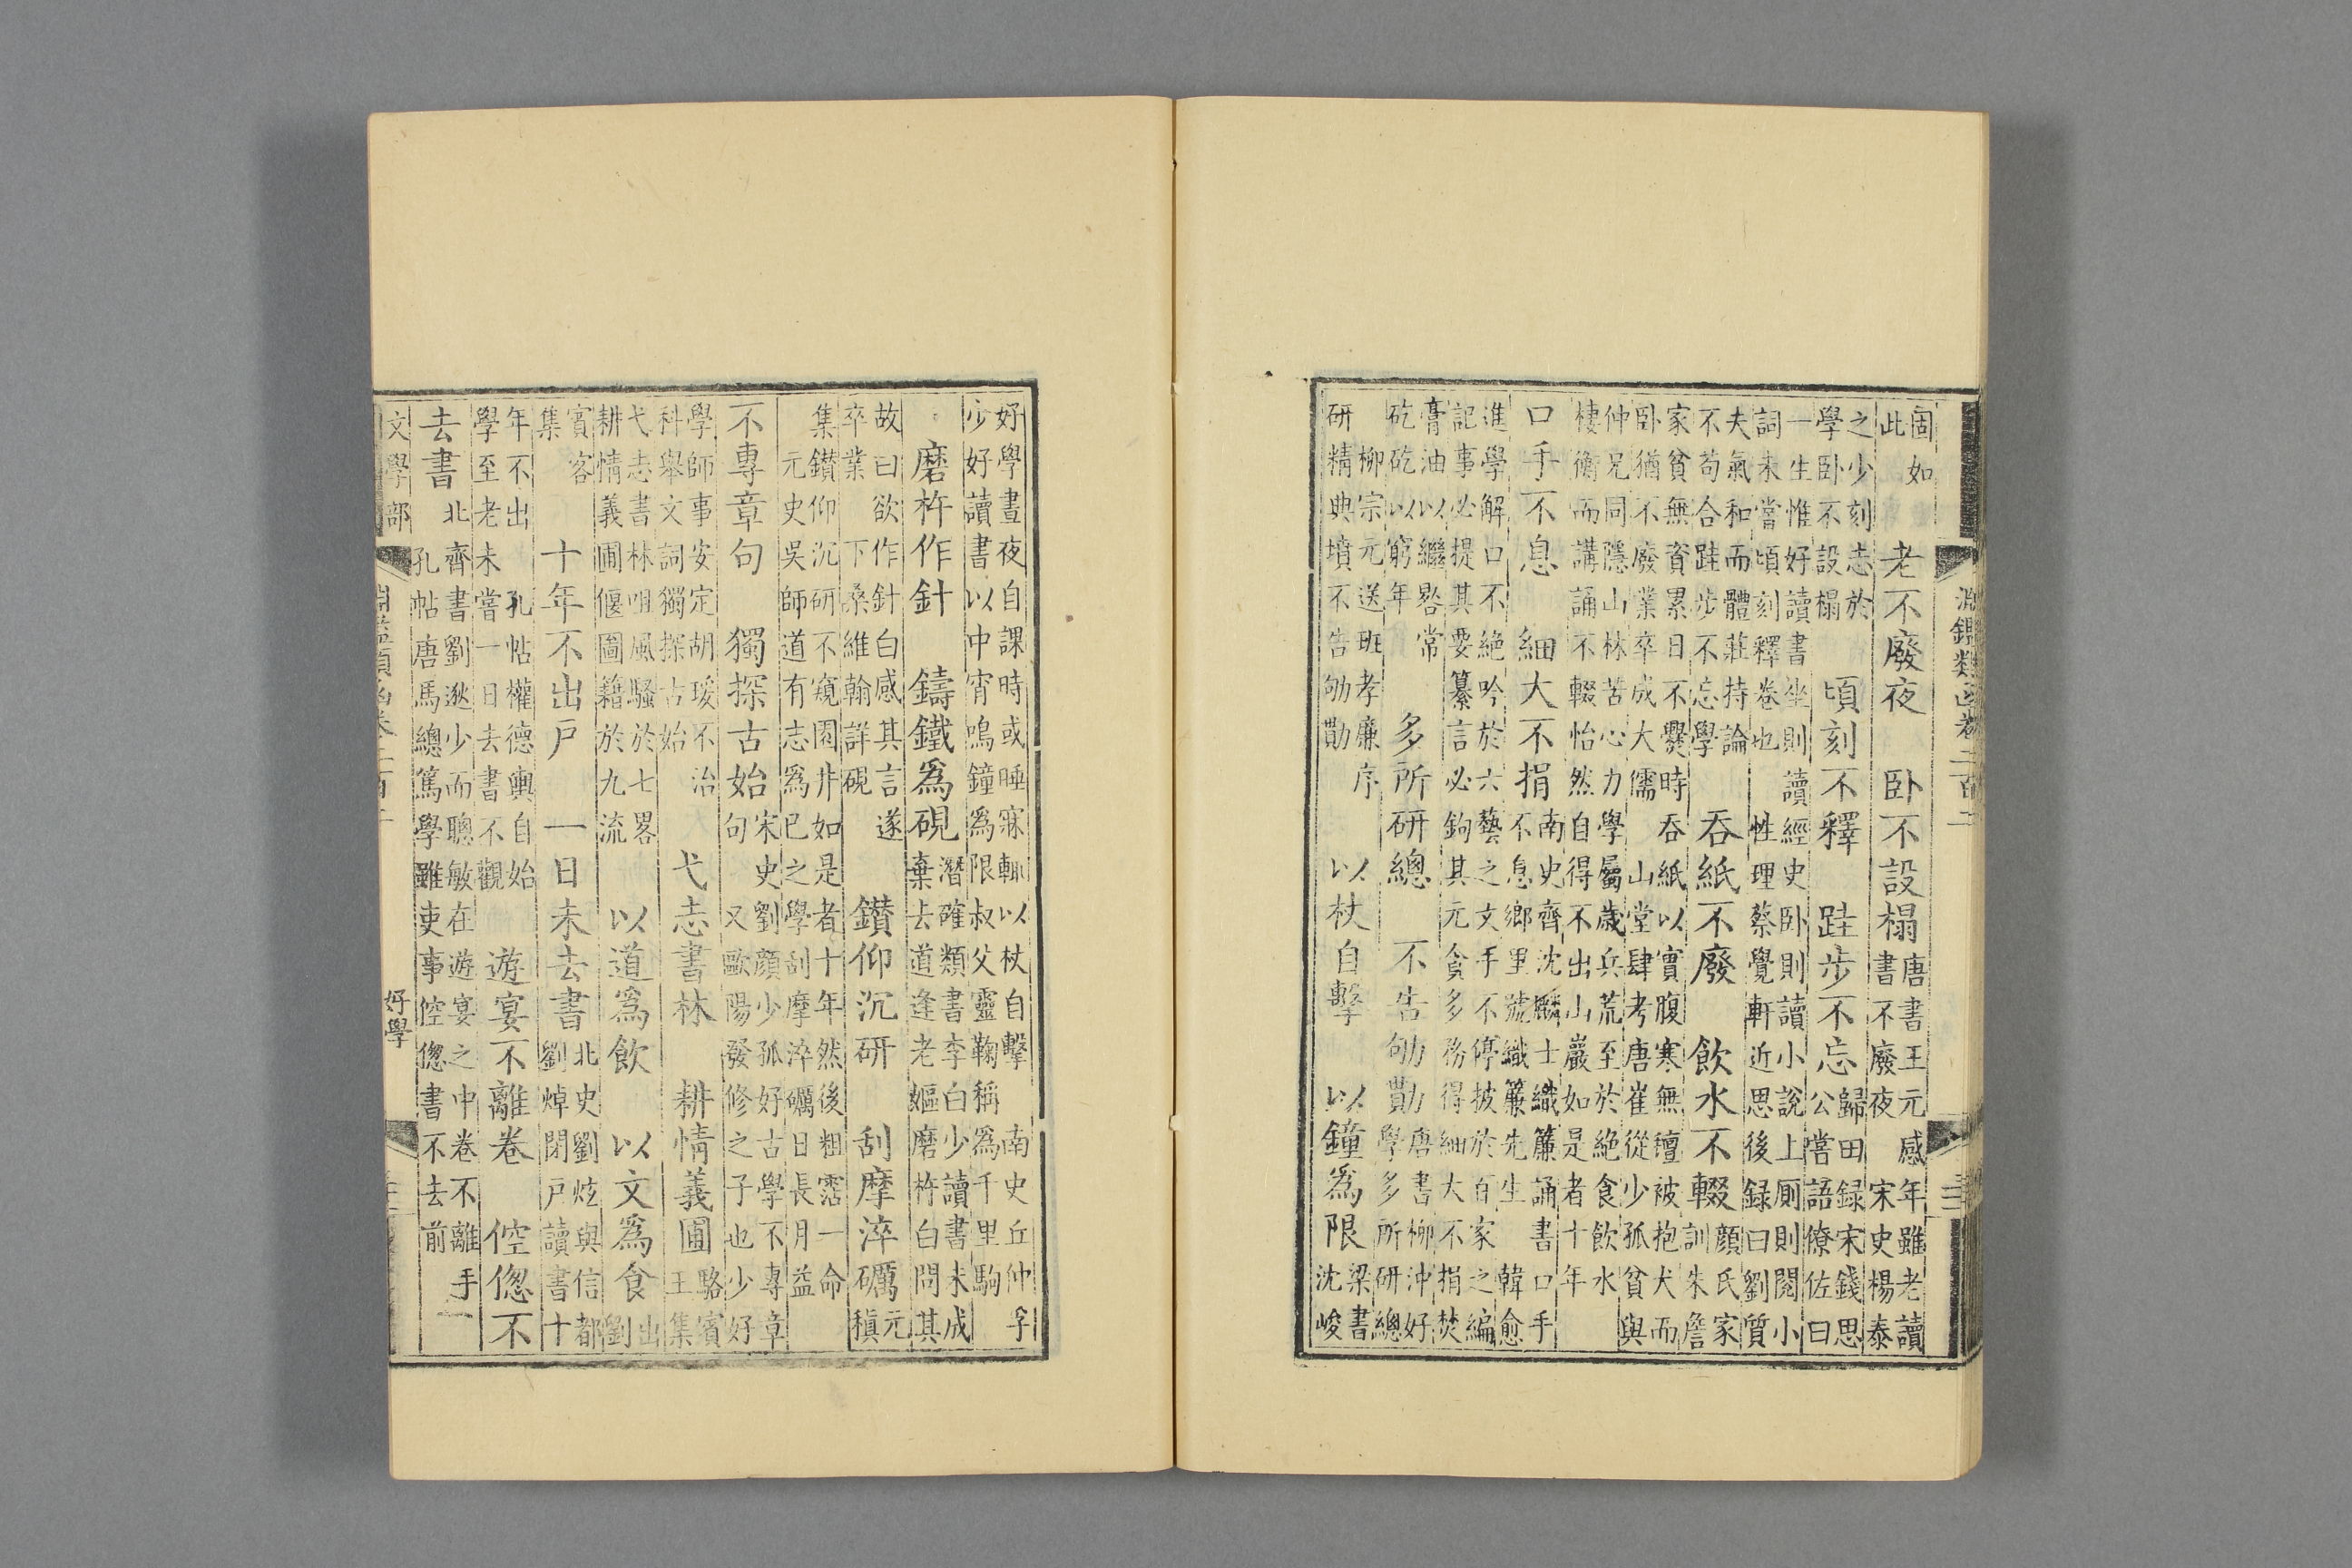 淵鑑類函卷二百二 三
固如
此
老不廢夜 卧不設榻
唐書王元感年雖老讀
書不廢夜 宋史楊泰
之少刻志於
學卧不設榻
頃刻不釋 跬步不忘
歸田録宋錢思
公嘗語僚佐曰
一生惟好讀書坐則讀經史卧則讀小說上厠則閱小
詞未嘗頃刻釋卷也 性理蔡覺軒近思後録曰劉質
夫氣和而體莊持論
不苟合跬步不忘學
吞紙不廢 飲水不輟
顔氏家
訓朱詹
家貧無資累日不爨時吞紙以實腹寒無氊被抱犬而
卧猶不廢業卒成大儒 山堂肆考唐崔從少孤貧與
仲兄同隱山林苦心力學屬歲兵荒至於絶食飲水
棲衡而講誦不輟怡然自得不出山巖如是者十年
口手不息 細大不捐
南史齊沈驎士織簾誦書口手
不息鄉里號織簾先生 韓愈
進學解口不絶吟於六藝之文手不停披於百家之編
記事必提其要纂言必鉤其元貪多務得細大不捐焚
膏油以繼晷常
矻矻以窮年
多所研總 不告劬勩
唐書柳沖好
學多所研總
柳宗元送班孝廉序
研精典墳不告劬勩
以杖自擊 以鐘爲限
梁書
沈峻
好學晝夜自課時或睡寐輒以杖自擊 南史丘仲孚
少好讀書以中宵鳴鐘爲限叔父靈鞠稱爲千里駒
磨杵作針 鑄鐵爲硯
潛確類書李白少讀書未成
棄去道逢老嫗磨杵白問其
故曰欲作針白感其言遂
卒業 下桑維翰詳硯
鑚仰沉研 刮摩淬礪
元
稹
集鑚仰沉研不窺園井如是者十年然後粗霑一命
元史吳師道有志爲巳之學刮摩淬礪日長月益
不專章句 獨探古始
宋史劉顔少孤好古學不專章
句 又歐陽發修之子也少好
學師事安定胡瑗不治
科舉文詞獨探古始
弋志書林 耕情義圃
駱賓
王集
弋志書林咀風騷於七畧
耕情義圃偃圖籍於九流
以道爲飲 以文爲食
出
劉
賓客
集
十年不出戸 一日未去書
北史劉炫與信都
劉焯閉戸讀書十
年不出 孔帖權德輿自始
學至老未嘗一日去書不觀
遊宴不離卷 倥偬不
去書
北齊書劉逖少而聰敏在遊宴之中卷不離手
孔帖唐馬總篤學雖吏事倥偬書不去前
文學部 好學